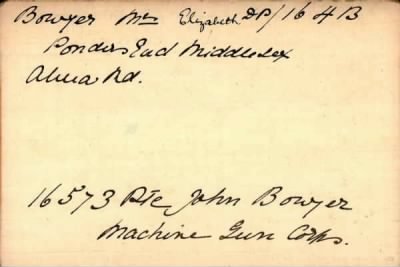 Bowyer Mrs Elizabeth DP/16 4 B
Ponders End Middlesex
Alma Rd.
16573 Pte John Bowyer
Machine Gun Corps.